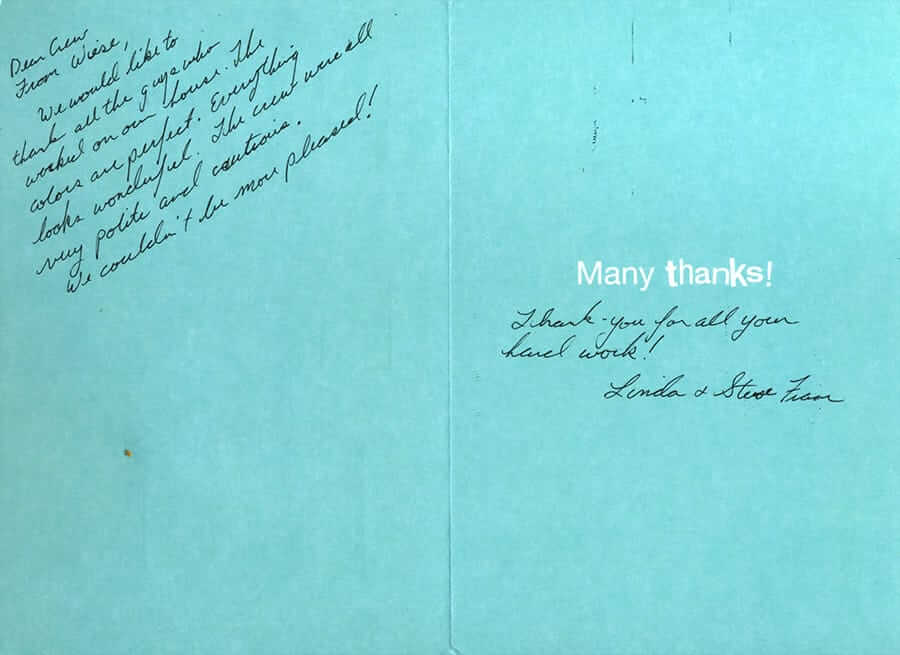 Dear Crew
From Wiese,
We would like to
thank all the guys who
worked on our house. The
colors are perfect. Everything
looks wonderful. The crew were all
very polite and cautious.
We couldn't be more pleased!
Many thanks!
Thank-you for all your
hard work!
Linda + Steve